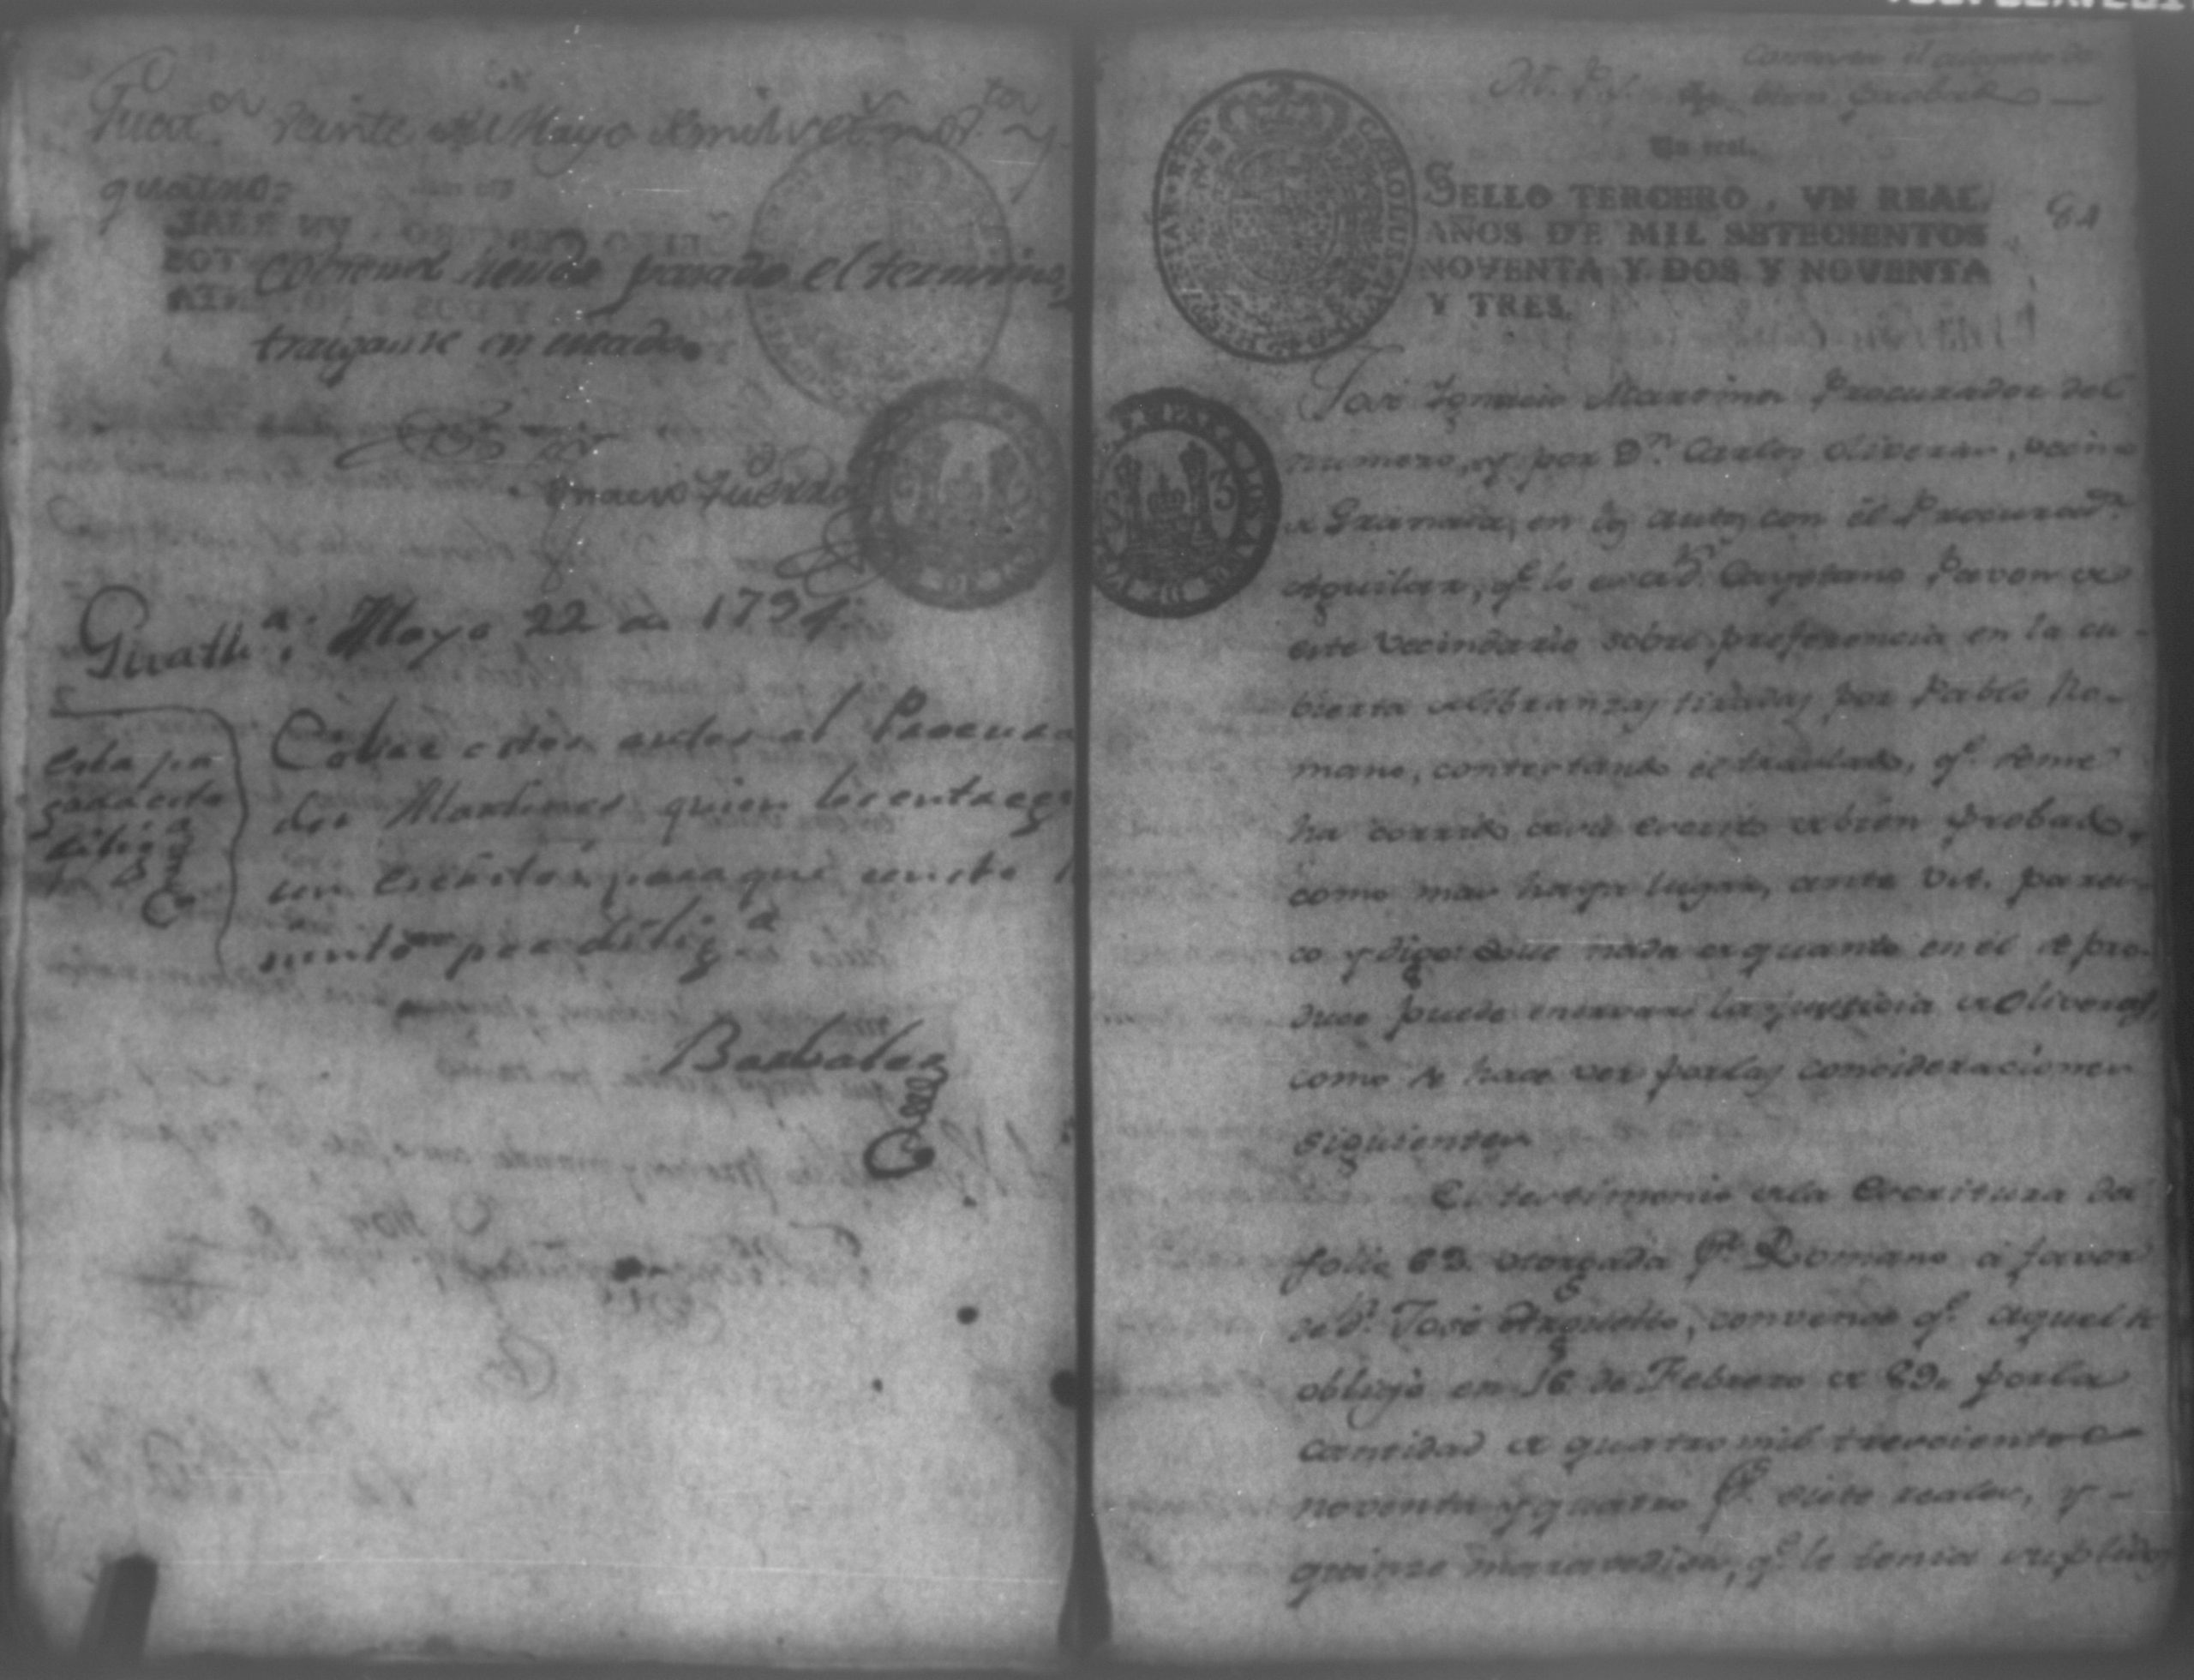 veinte de Mayo de mil
quatro=
Cobrense siendo pasado el termino,
traiganse en estado.
Ignacio Guerra
Guath.ª, Mayo 22 de 1794.
esta pa
gada esta
dilig.ª
Cobré estos autos al Procura
dor Martinez quien los entregó
con escrito, para que conste lo
siento por dilig.ª
Barbales
bien probado
Un real.
SELLO TERCERO, VN REAL,
AÑOS DE MIL SETECIENTOS
NOVENTA Y DOS Y NOVENTA
Y TRES.
José Ignacio Martinez Procurador del
numero, y por D.n Carlos Oliveras, vecino
de Granada, en los autos con el Procurad.or
Aguilar, q.e lo es de D.n Cayetano Pavon de
este Vecindario sobre preferencia en la cu-
bierta de libranzas tiradas por Pablo Ro-
mano, contestando el traslado, q.e se me
ha corrido del escrito de bien probado,
como mas haya lugar, ante V.A. pares-
co y digo: Que nada de quanto en él se pro-
duce puede enervar la justicia de Oliveras,
como se hace ver por las consideraciones
siguientes.
El testimonio de la Escritura del
folio 63. otorgada p.r Romano á favor
de D.n José Arguello, convence q.e aquel se
obligó en 16 de Febrero de 89. por la
cantidad de quatro mil trescientos
noventa y quatro p.s siete reales, y-
quinze maravedises, q.e le tenia suplidos